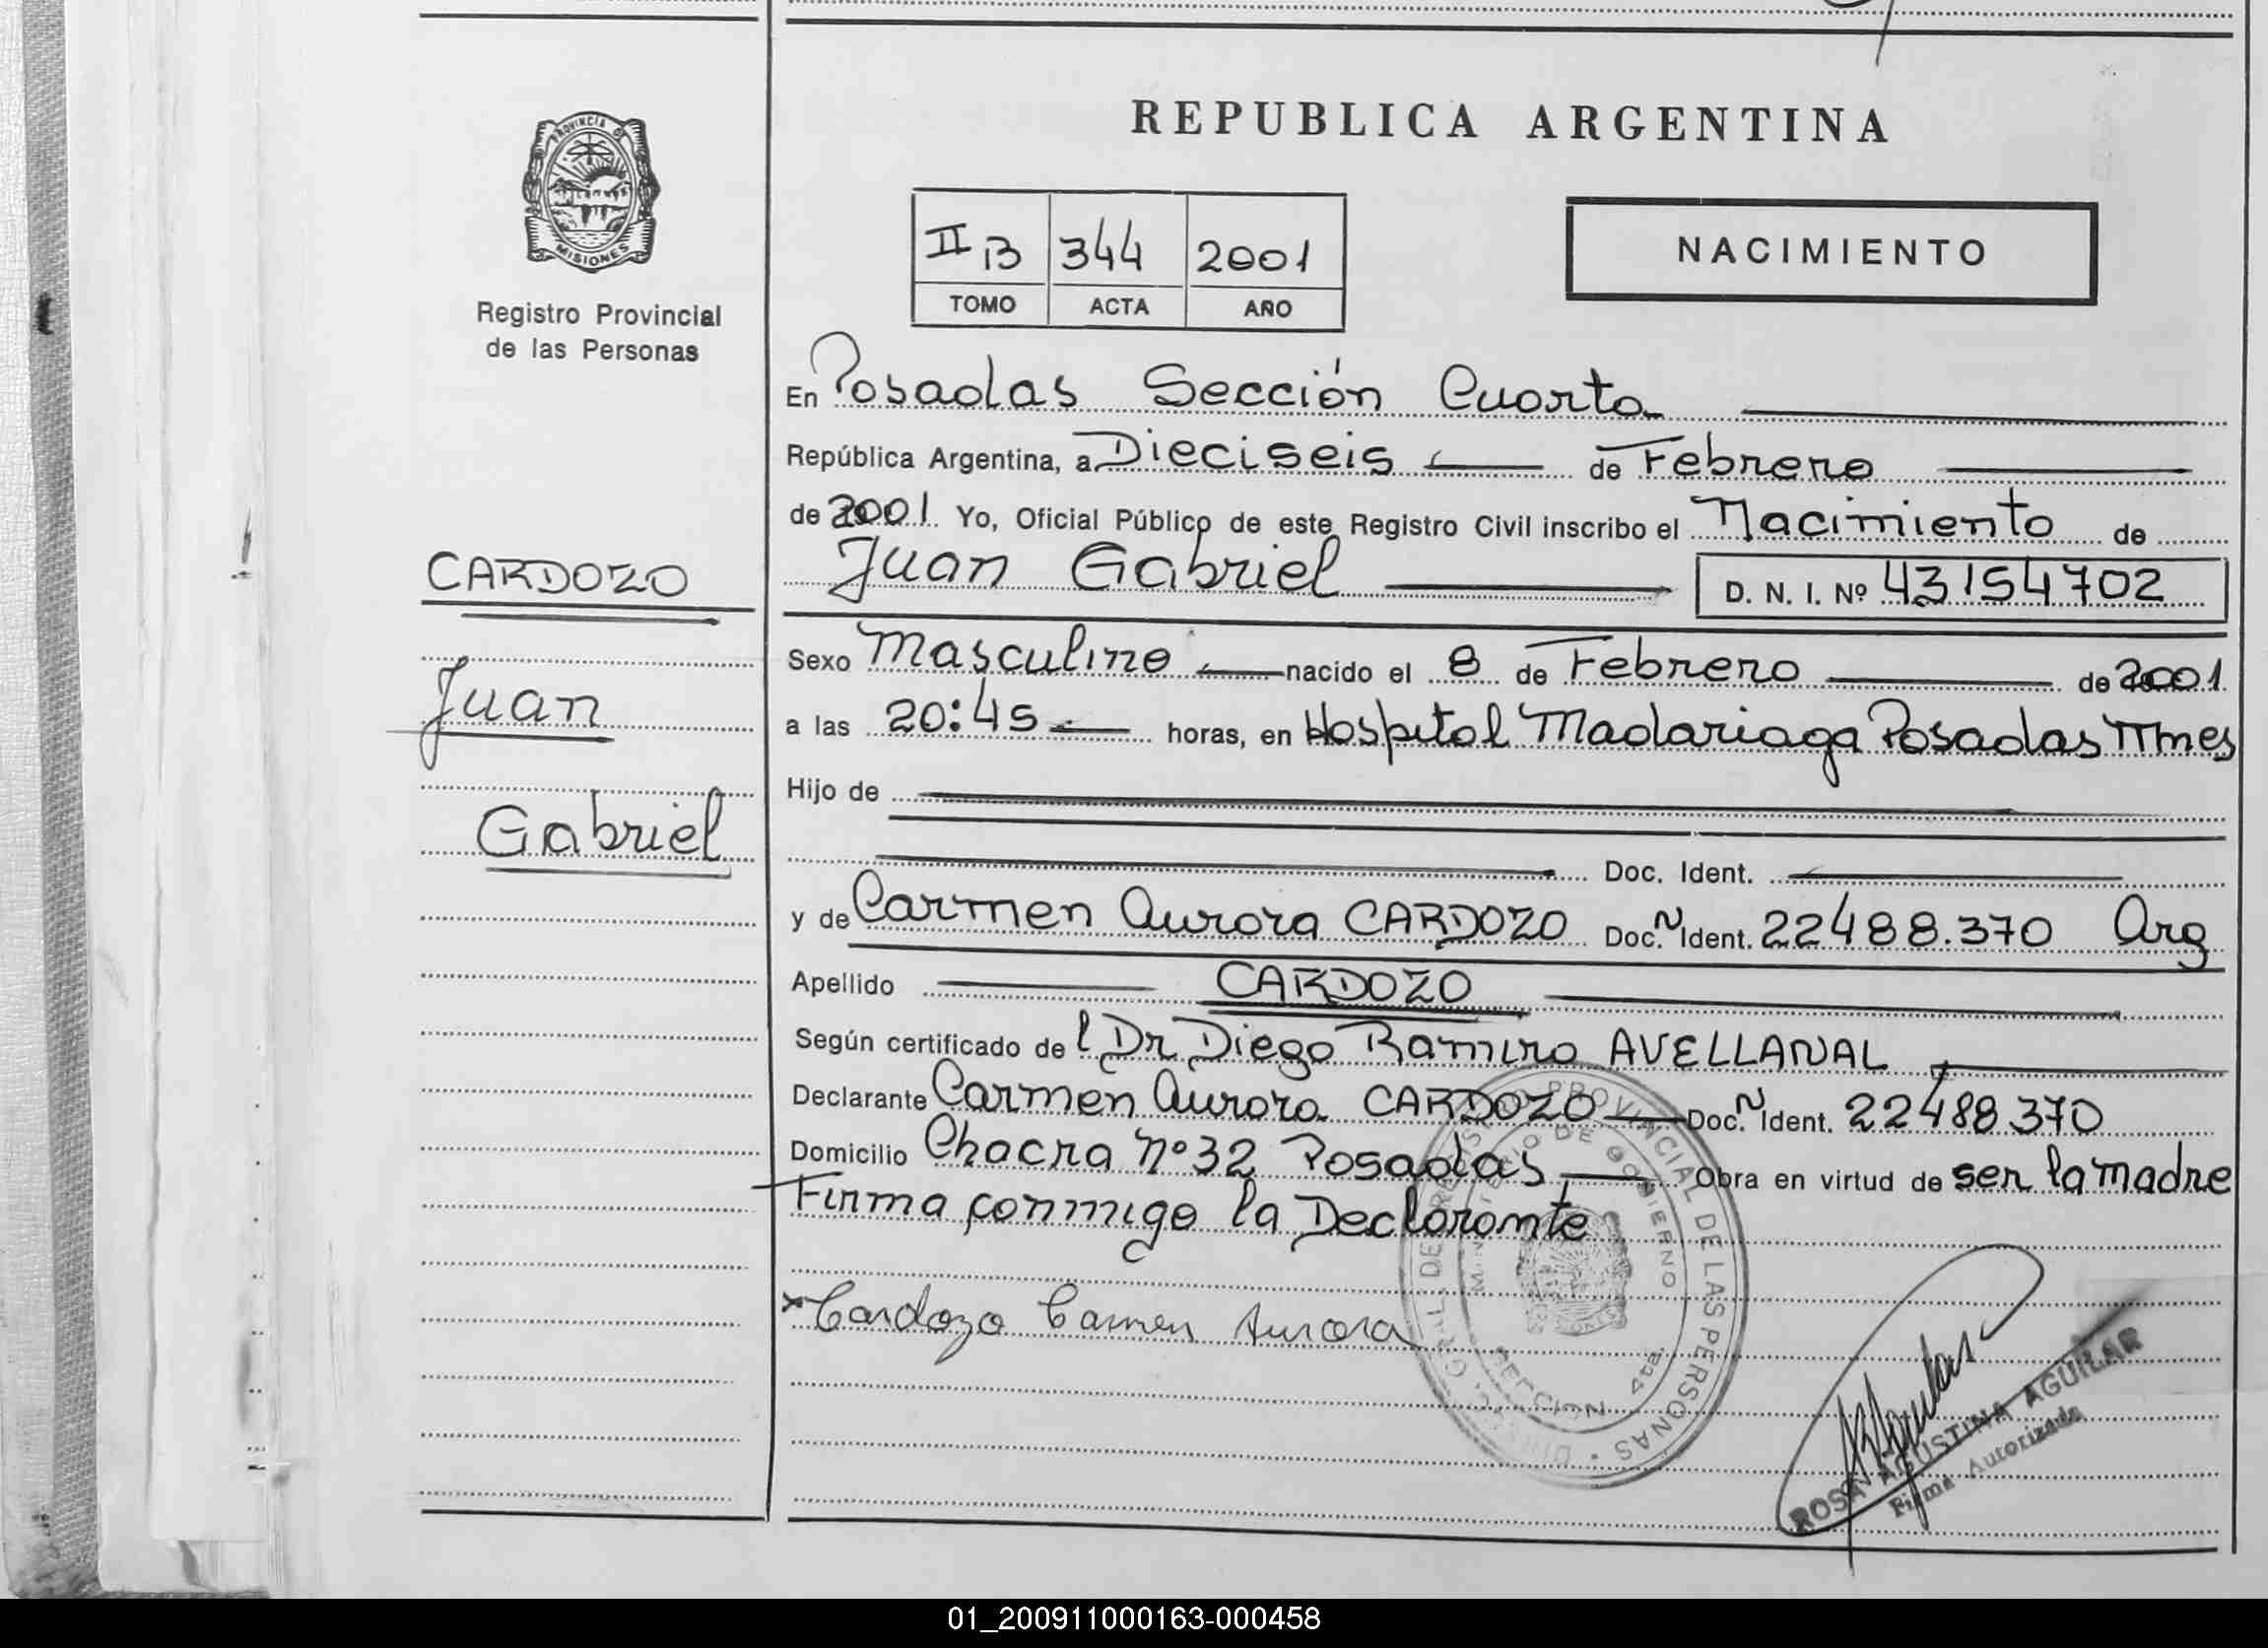 REPUBLICA ARGENTINA
PROVINCIA DE
MISIONES
Registro Provincial
de las Personas
II B 344 2001
TOMO ACTA AÑO
NACIMIENTO
En Posadas Sección Cuarta
República Argentina, a Dieciseis de Febrero
de 2001 Yo, Oficial Público de este Registro Civil inscribo el Nacimiento de
Juan Gabriel D. N. I. Nº 43154702
CARDOZO
Juan
Gabriel
Sexo Masculino nacido el 8 de Febrero de 2001
a las 20:45 horas, en Hospital Madariaga Posadas Mnes
Hijo de
Doc. Ident.
y de Carmen Aurora CARDOZO Doc. N Ident. 22488.370 Arg
Apellido CARDOZO
Según certificado de l Dr Diego Ramiro AVELLANAL
Declarante Carmen Aurora CARDOZO Doc. N Ident. 22488370
Domicilio Chacra nº 32 Posadas Obra en virtud de ser la madre
Firma conmigo la Declarante
x Cardozo Carmen Aurora
DIREC. GRAL. DE REGISTRO PROVINCIAL DE LAS PERSONAS
MINISTERIO DE GOBIERNO
SECCION 4ta.
ROSA AGUSTINA AGUILAR
Firma Autorizada
01_200911000163-000458